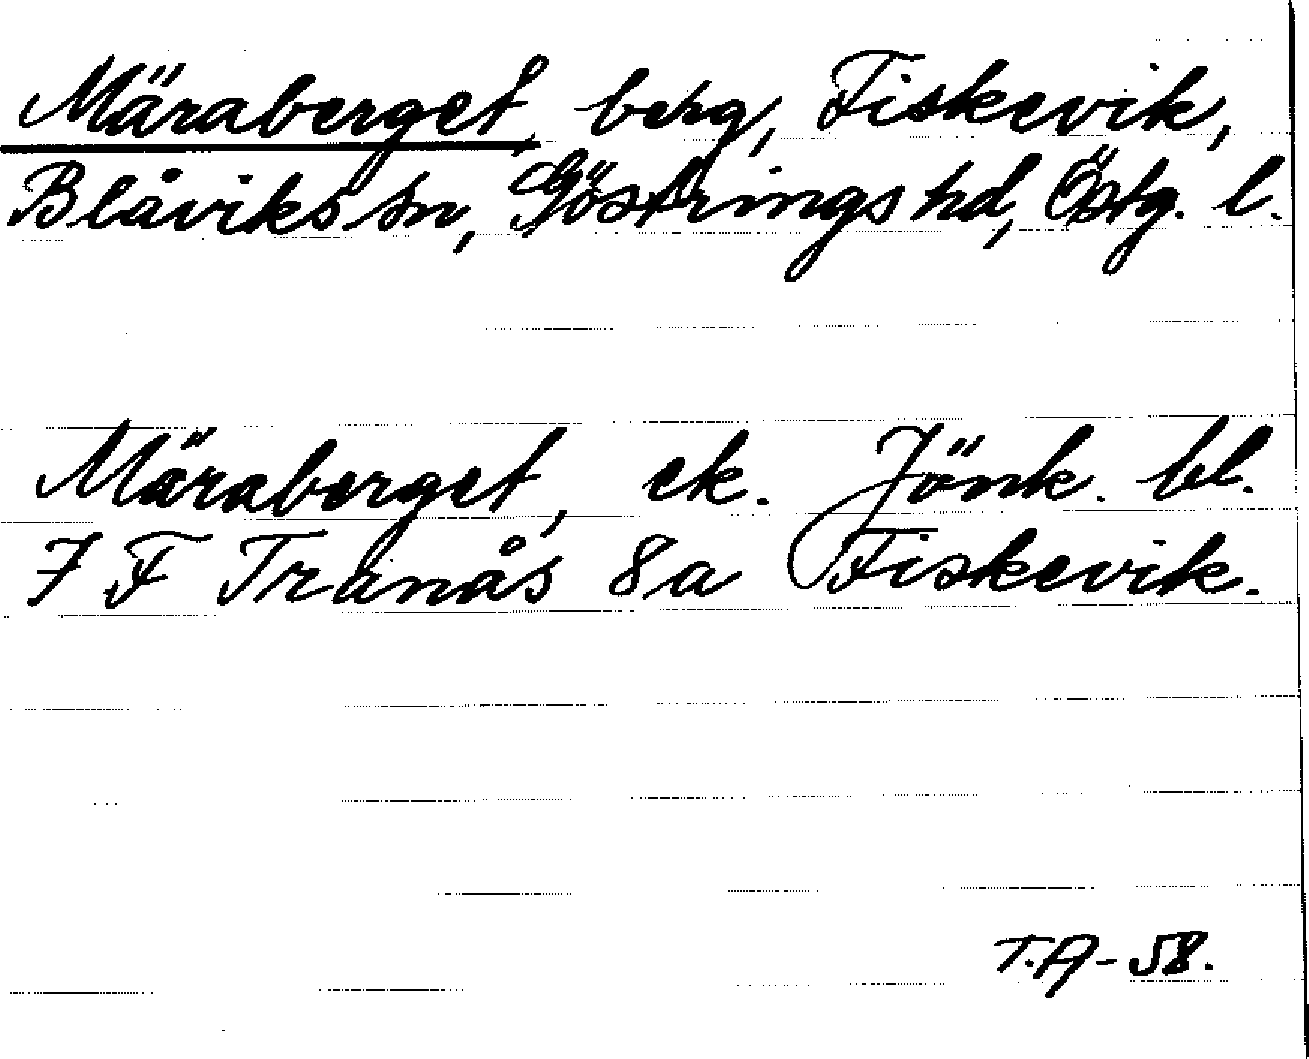 Märaberget, berg, Fiskevik,
Blåviks sn, Göstrings hd, Östg. l.
Märaberget, ek. Jönk. bl.
7 F Tranås 8a Fiskevik.
T.A-58.